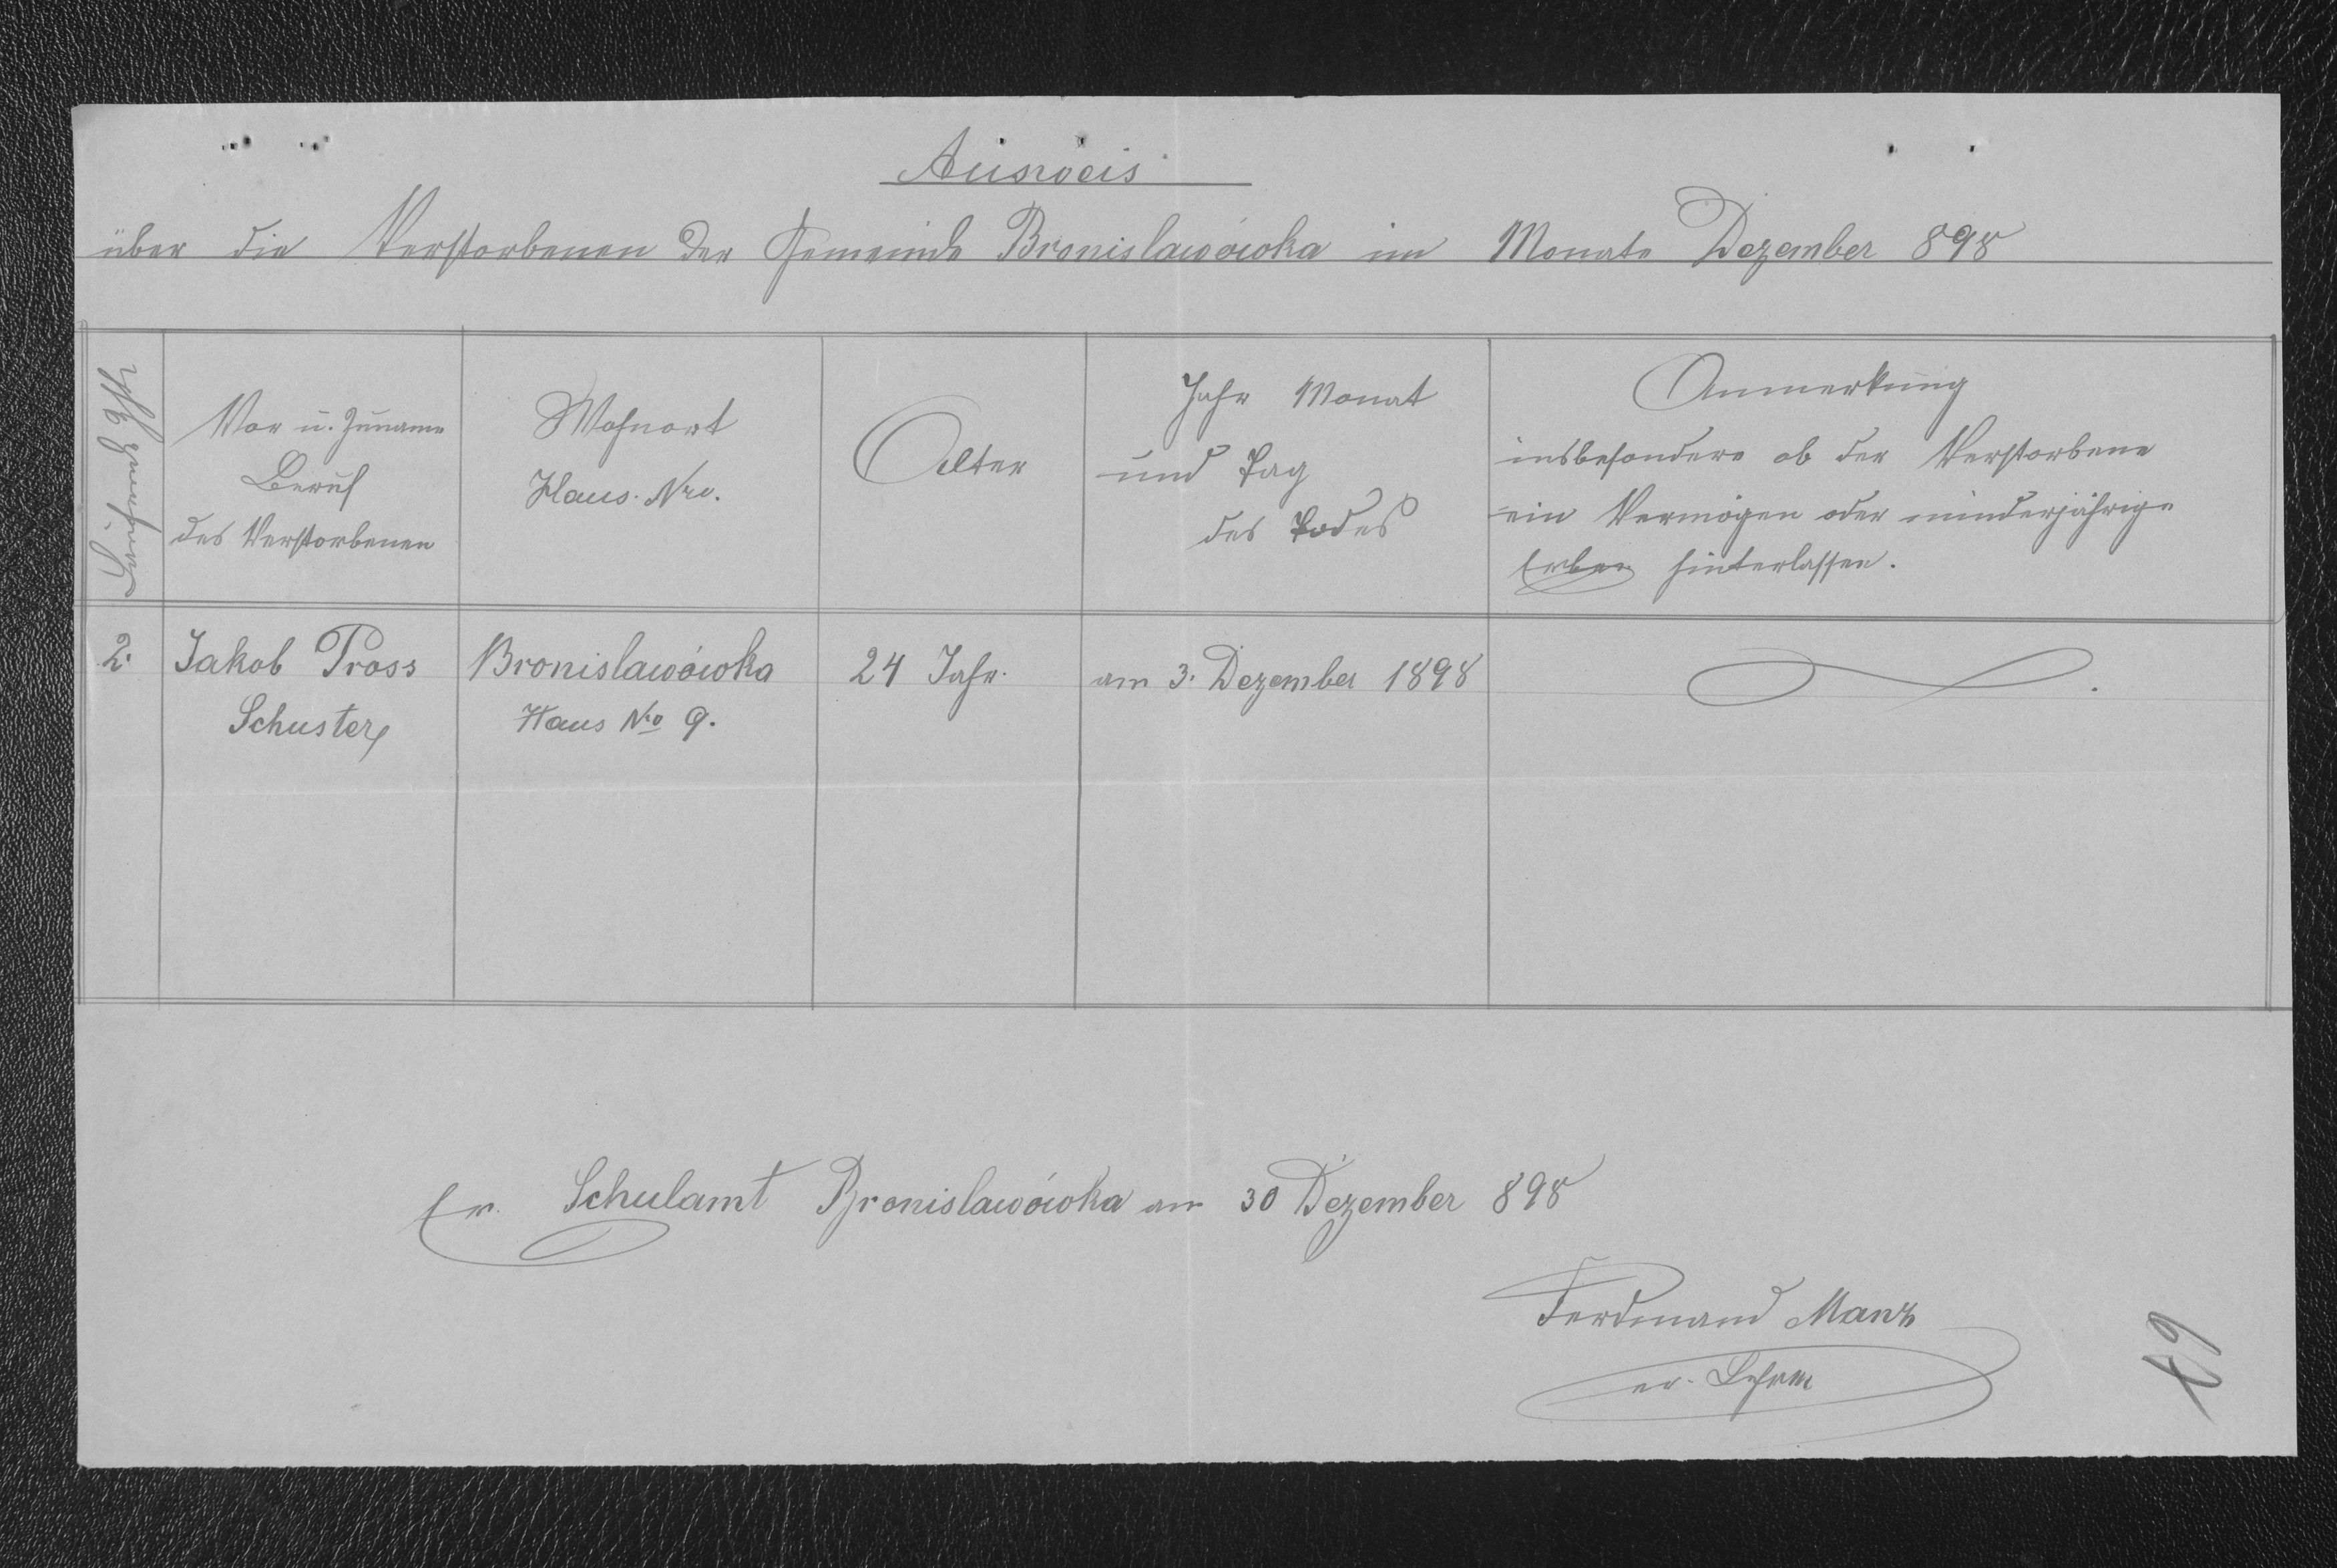 Ausweis
über die Verstorbenen der Gemeinde Bronislawówka im Monate Dezember 898
Vor u. Zuname
Beruf
des Verstorbenen
Wohnort
Haus. Nro.
Alter
Jahr Monat
und Tag
des Todes
Anmerkung
insbesondere ob der Verstorbene
ein Vermögen oder minderjährige
Erben hinterlassen.
2. Jakob Pross Bronislawówka 24 Jahr. am 3. Dezember 1898
Schuster Haus Nro 9.
Ev. Schulamt Bronislawówka am 30 Dezember 898
Ferdinand Manz
ev. Lehrer